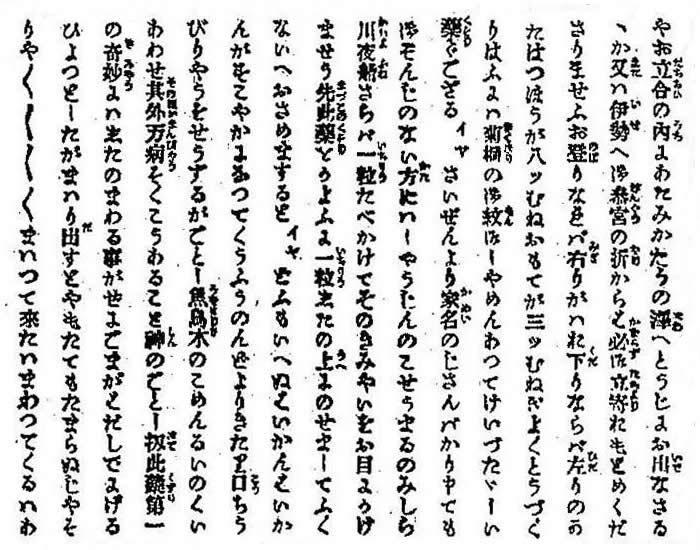 やお立合の内にあたみかたうの澤へとうじにお出なさる
ゝか又ハ伊勢へ御参宮の折からも必御立寄をもとめくだ
さりませふお登りなれバ右りがハお下りならバ左りのか
たはつほうが八ツむねおもてが三ツむねぎよくどうづく
りはふにハ菊桐の御紋御しやめんあつてけいづたゞしい
薬でござる イヤ さいぜんより家名のじさんバかり申ても
御ぞんじのない方にハしやうじんのこせうまるのみしら
川夜船さらバ一粒たべかけてそのきみやいをお目にかけ
ませう先此薬をかよふに一粒志たの上にのせましてふく
ないへおさめますると イヤ どふもいへぬハいかんはいか
んがすこやかになつてくんふうのんどよりきたり口ちう
びりやうをせうずるがごとし魚鳥木のこめんるいのくい
あわせ其外万病そくこうあること神のごとし扨此薬第一
の奇妙にハ志たのまわる事がぜにごまがはだしでにげる
ひよつとしたがまハり出すとやもたてもたまらぬじやそ
りや〱〱〱〱まハつて来たハまわつてくるハわ